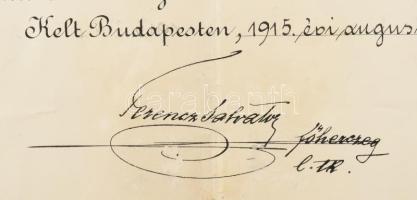 Kelt Budapesten, 1915. évi augus
Ferencz Salvator
főherczeg
l. tk.